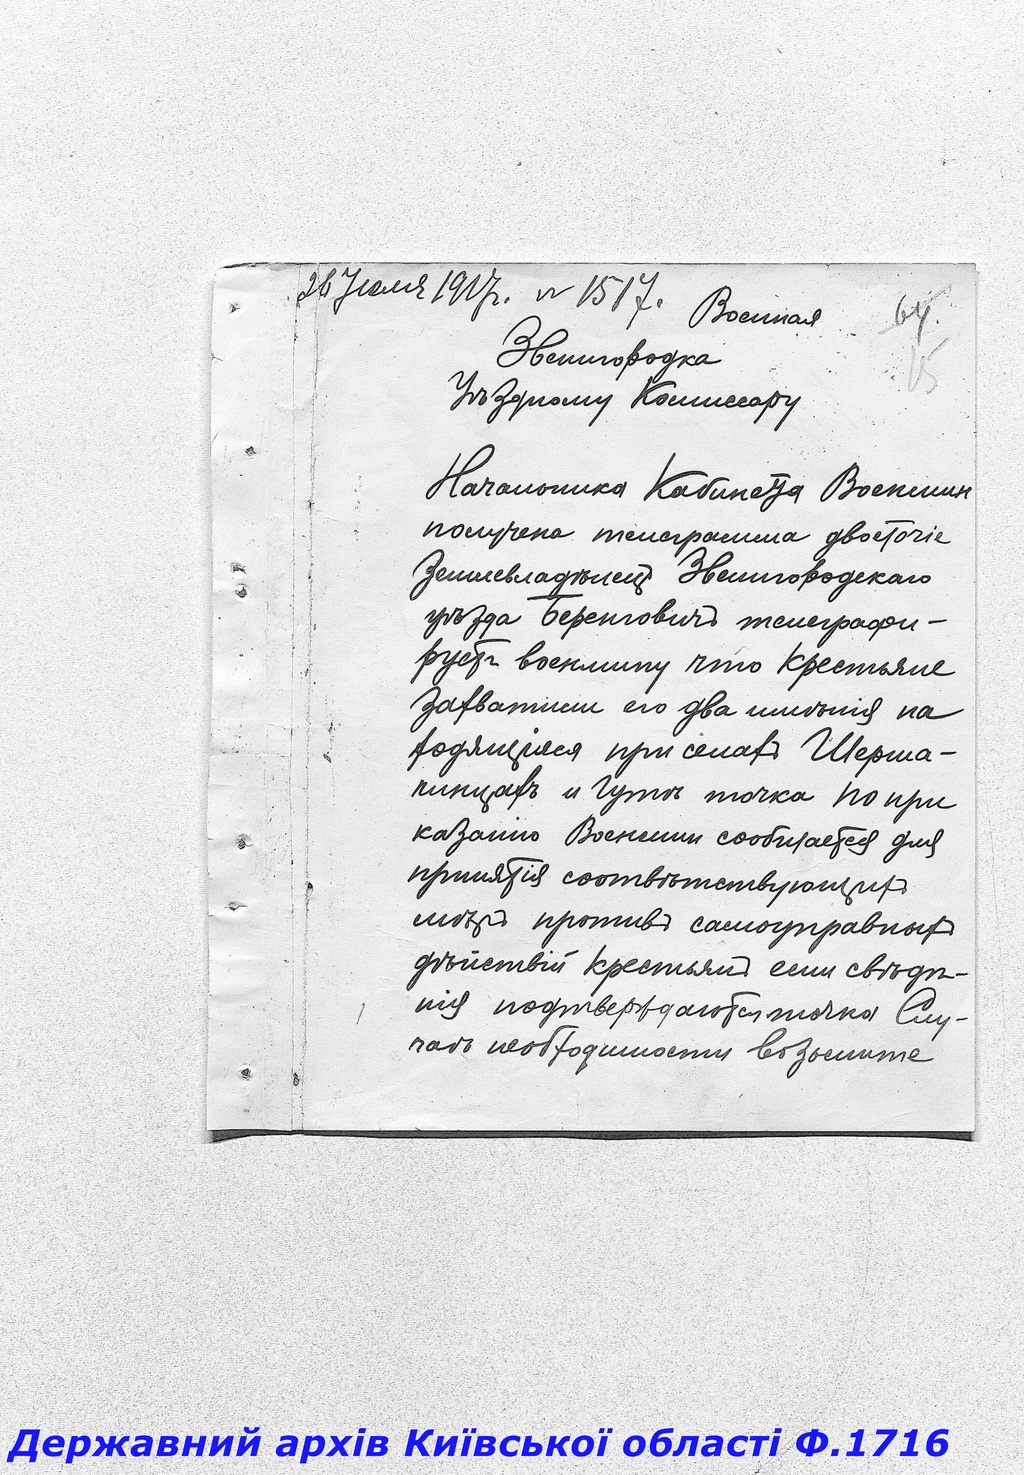 26 Июля 1917г. № 1517.
Военная
64.
15
Звенигородка
Уѣздному Комиссару
Начальника Кабинета Военмин
получена телеграмма двоеточіе
Землевладѣлец Звенигородскаго
уѣзда телеграфи-
руетъ военмину что крестьяне
захватили его два имѣнія на
ходящіяся при селахъ
чинцахъ и Гутѣ точка По при
казанію Военмин сообщается для
принятія соотвѣтствующихъ
мѣръ противъ самоуправныхъ
дѣйствій крестьянъ если свѣдѣ-
нія подтверждаются точка Слу-
чаѣ необходимости возьмите
Державний архів Київської області Ф.1716